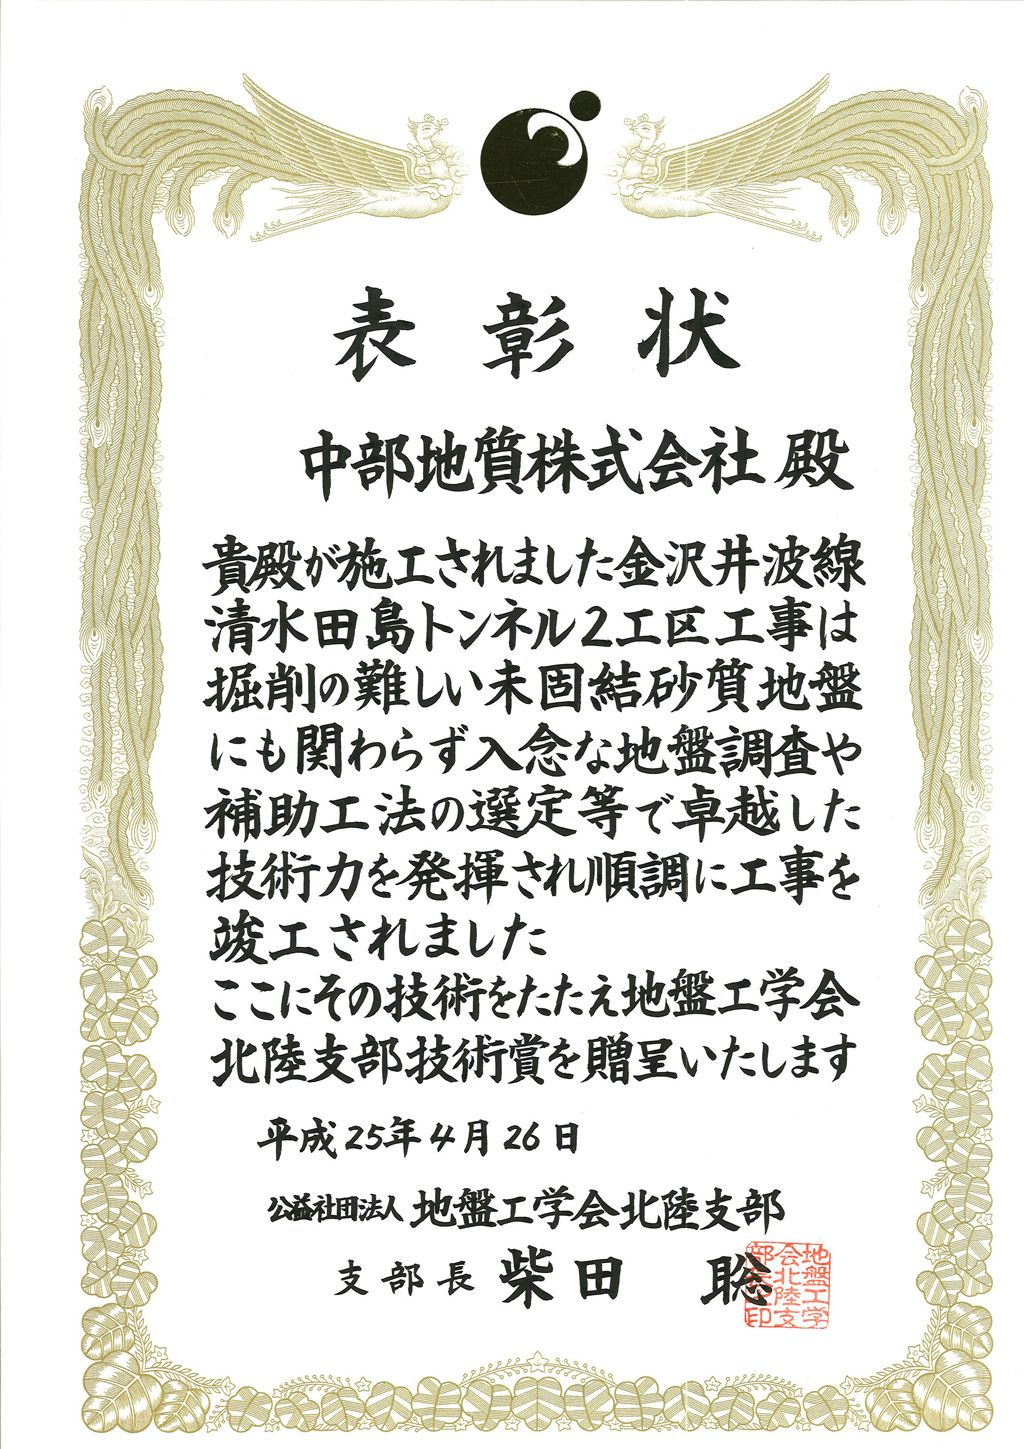 表彰状
中部地質株式会社 殿
貴殿が施工されました金沢井波線
清水田島トンネル2工区工事は
掘削の難しい未固結砂質地盤
にも関わらず入念な地盤調査や
補助工法の選定等で卓越した
技術力を発揮され順調に工事を
竣工されました
ここにその技術をたたえ地盤工学会
北陸支部技術賞を贈呈いたします
平成25年4月26日
公益社団法人 地盤工学会北陸支部
支部長 柴田 聡
地盤工学
会北陸支
部長之印